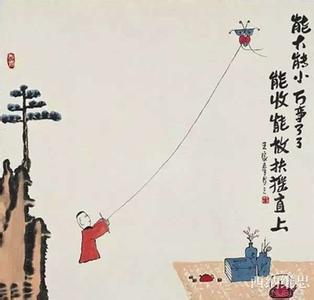 能大能小 万事了了
能收能放扶摇直上
西纳维思